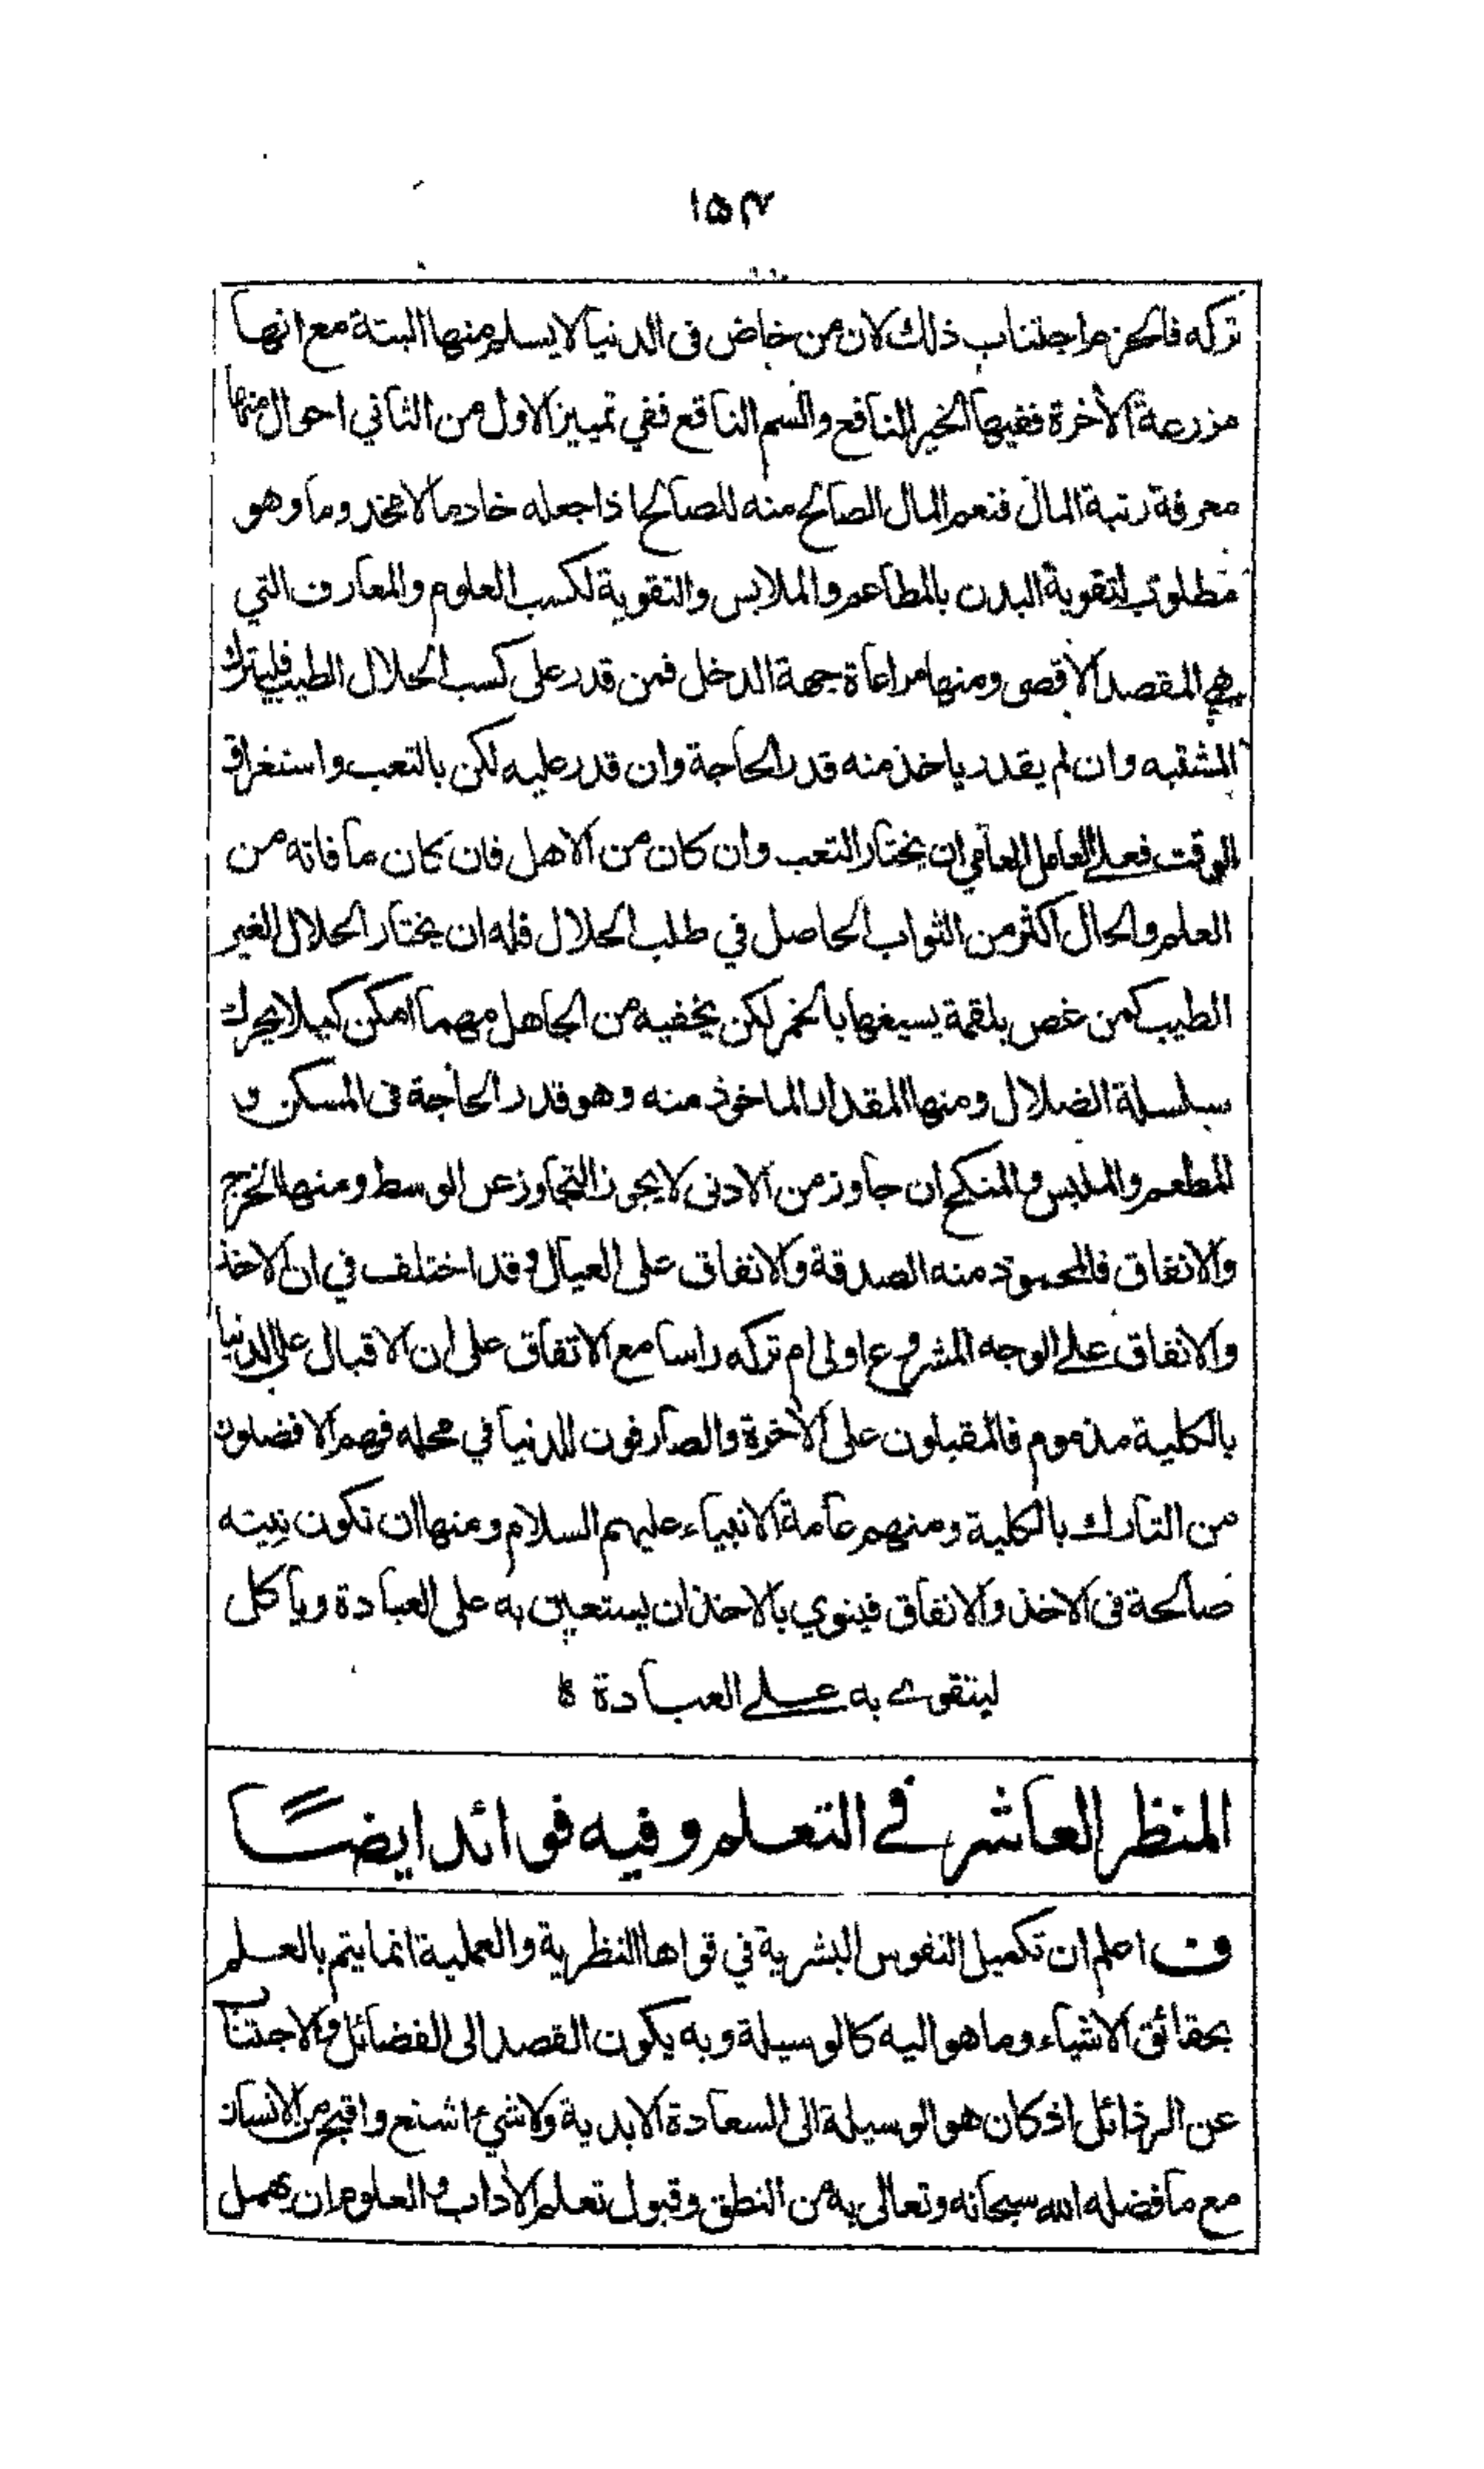 ١٥٣
تركه فالحزم اجتناب ذلك لان من خاض فى الدنيا لا يسلم منها البتة مع انها
مزرعة الأخرة ففيها الخير النافع والسم الناقع ففي تمييز الاول من الثاني احوال منها
معرفة رتبة المال فنعم المال الصالح منه للصالح اذا جعله خادما لا مخدوما وهو
مطلوب لتقوية البدن بالمطاعم والملابس والتقوية لكسب العلوم والمعارف التي
هي المقصد الأقصى ومنها مراعاة جهة الدخل فمن قدر على كسب الحلال الطيب فليترك
المشتبه وان لم يقدر ياخذ منه قدر الحاجة وان قدر عليه لكن بالتعب واستغراق
الوقت فعلى العامل العامي ان يختار التعب وان كان من الاهل فان كان ما فاته من
العلم والحال اكثر من الثواب الحاصل في طلب الحلال فله ان يختار الحلال الغير
الطيب كمن غص بلقمة يسيغها بالخمر لكن يخفيه من الجاهل مهما امكن كيلا يحرك
سلسلة الضلال ومنها المقدار الماخوذ منه وهو قدر الحاجة فى المسكن و
المطعم والملبس والمنكح ان جاوز من الادنى لا يجوز التجاوز عن الوسط ومنها الخرج
والانفاق فالمحمود منه الصدقة والانفاق على العيال وقد اختلف في ان الاخذ
والانفاق على الوجه المشروع اولى ام تركه راسا مع الاتفاق على ان الاقبال على الدنيا
بالكلية مذموم فالمقبلون على الأخرة والصارفون للدنيا في محله فهم الافضلون
من التارك بالكلية ومنهم عامة الانبياء عليهم السلام ومنها ان تكون نيته
صالحة فى الاخذ والانفاق فينوي بالاخذ ان يستعين به على العبادة وياكل
ليتقوى به على العبادة
المنظر العاشر في التعلم وفيه فوائد ايضًا
ف اعلم ان تكميل النفوس البشرية في قواها النظرية والعملية انما يتم بالعلم
بحقائق الاشياء وما هو اليه كالوسيلة وبه يكون القصد الى الفضائل والاجتناب
عن الرذائل اذ كان هو الوسيلة الى السعادة الابدية ولا شيء اشنع واقبح من الانسان
مع ما فضله الله سبحانه وتعالى به من النطق وقبول تعلم الأداب والعلوم ان يهمل